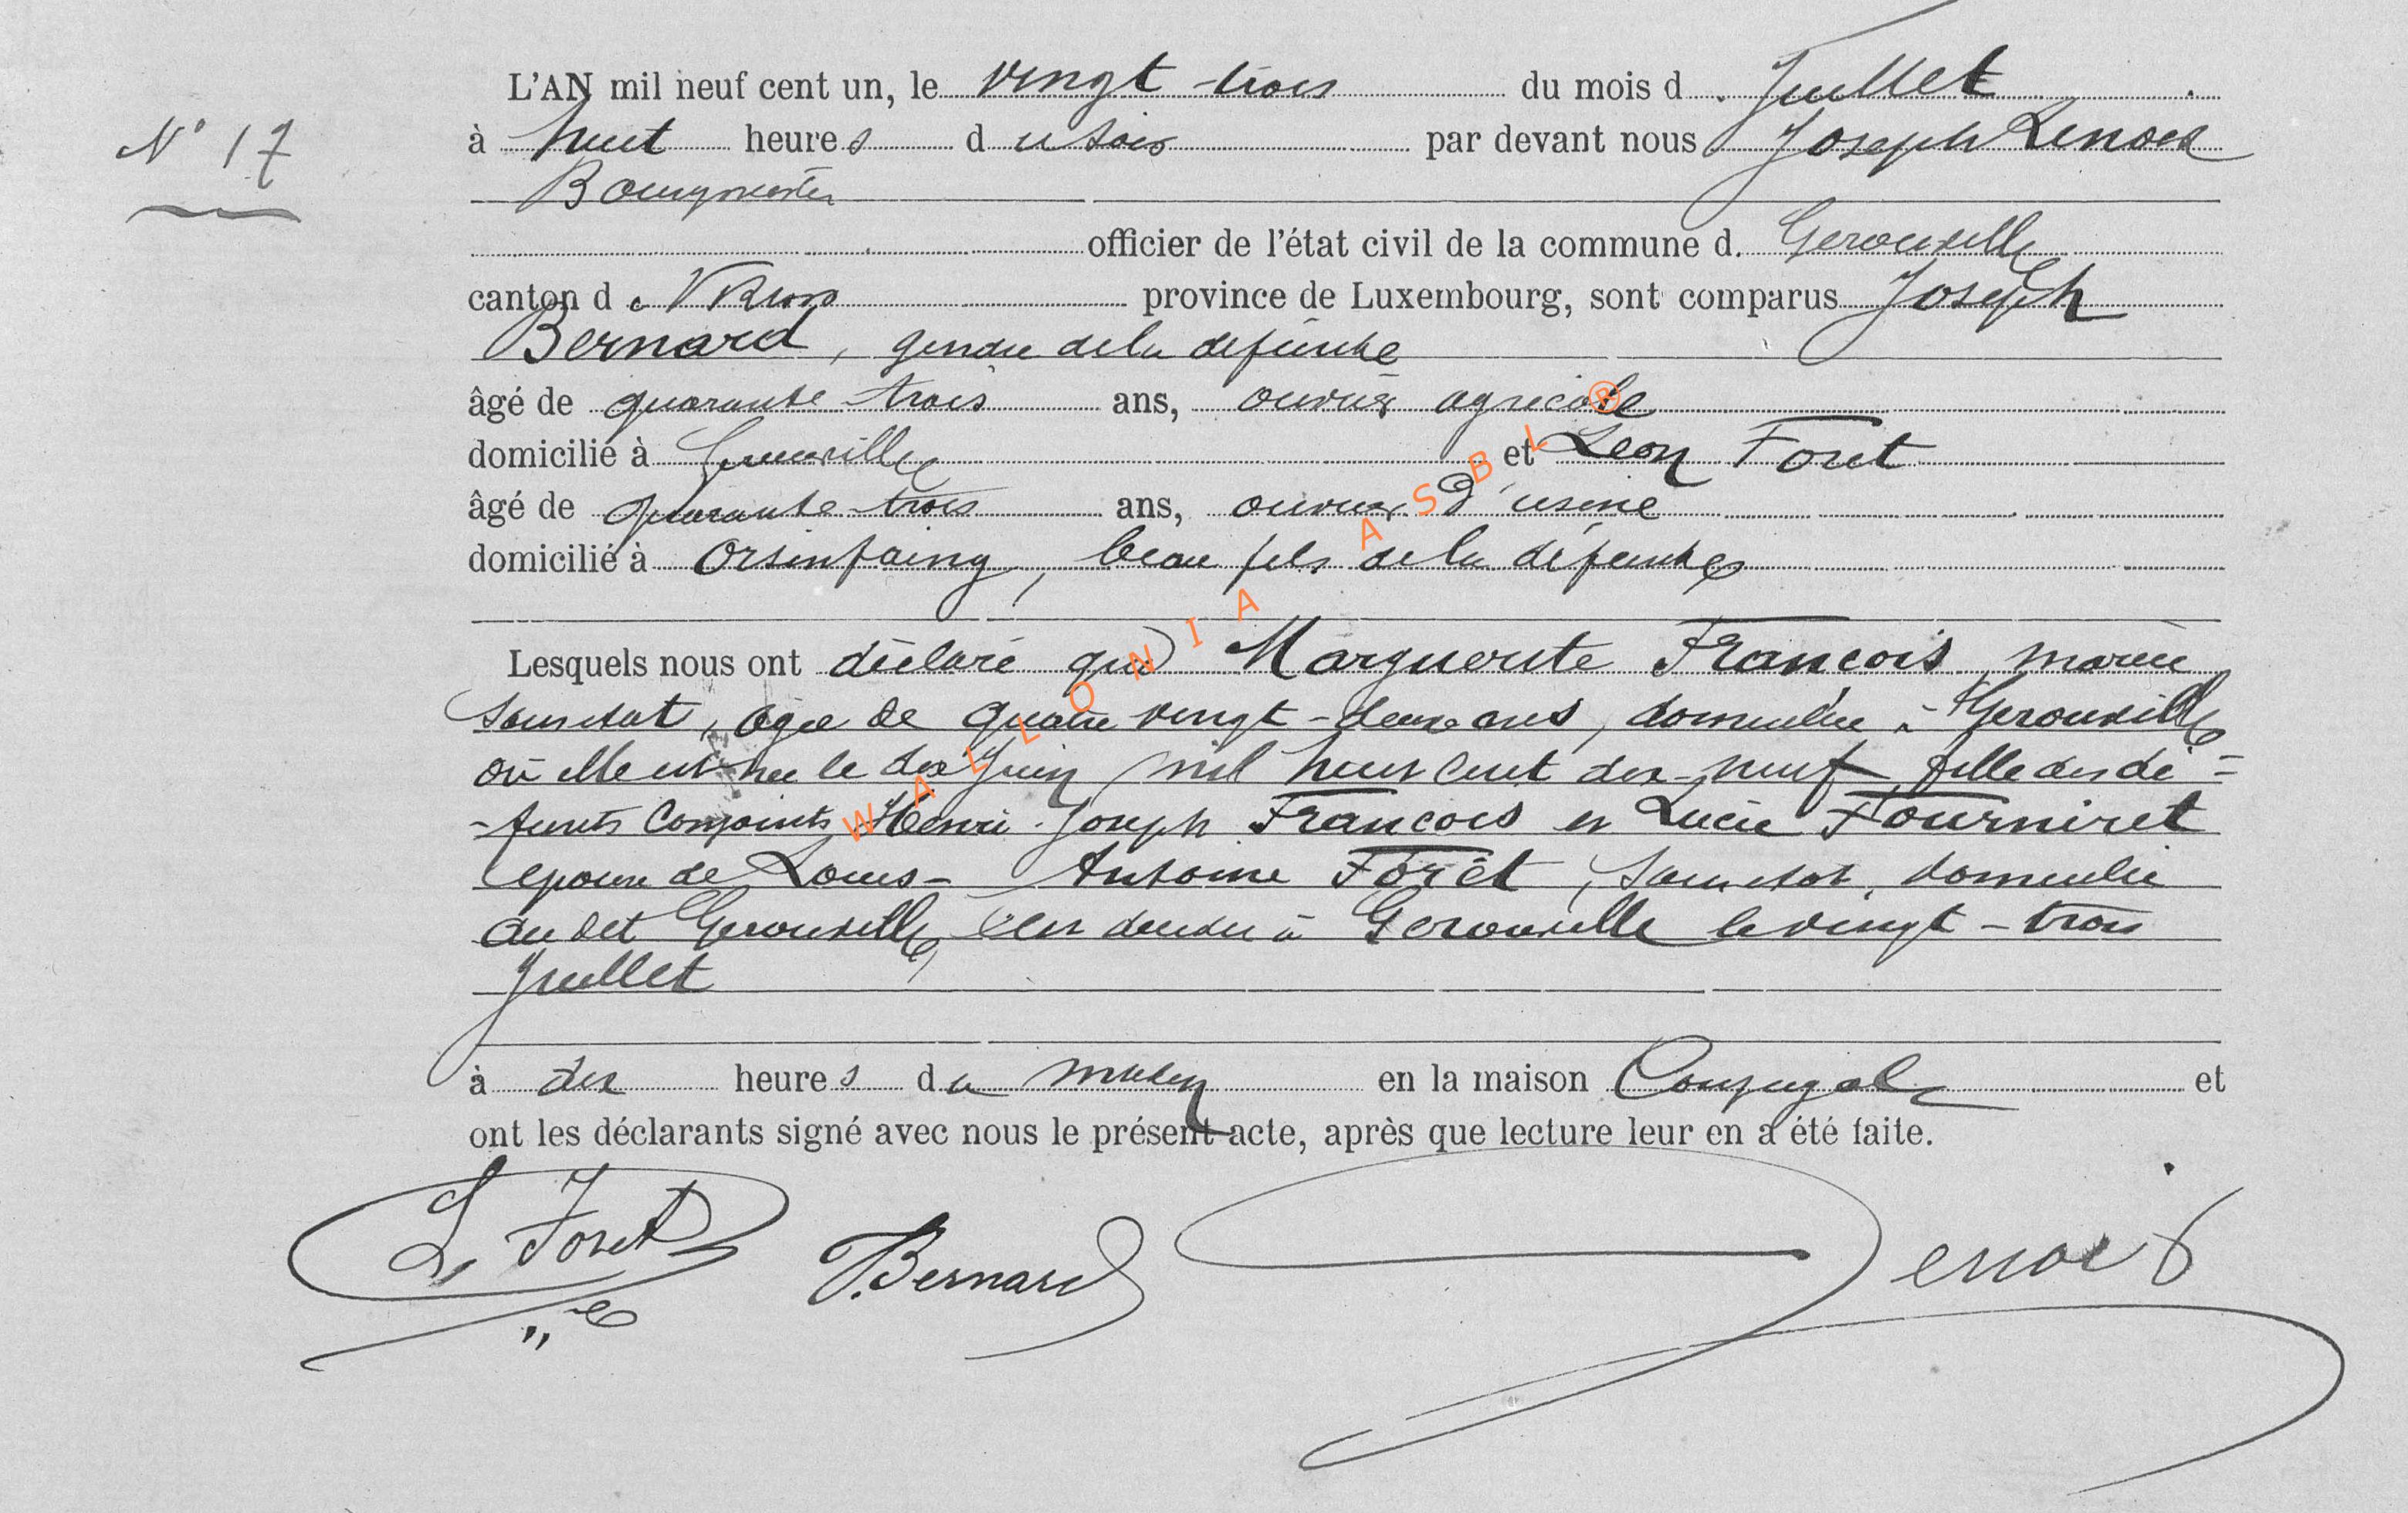 L'AN mil neuf cent un, le vingt-trois du mois d. Juillet
N° 17
à huit heures du soir par devant nous Joseph Lenoir
Bourgmestre
officier de l'état civil de la commune d. Gerouville
canton de Virton province de Luxembourg, sont comparus Joseph
Bernard, gendre de la défunte
âgé de quarante-trois ans, ouvrier agricole
domicilié à Gerouville et Léon Foret
âgé de quarante-trois ans, ouvrier d'usine
domicilié à Orsinfaing, beau fils de la défunte
Lesquels nous ont déclaré que Marguerite Francois mariée
sans état, agée de quatre vingt-deux ans, domiciliée à Gerouville
où elle est née le dix Juin mil huit cent dix-neuf fille des dé=
-funts conjoints Henri-Joseph Francois et Lucie Fourniret
épouse de Louis-Antoine Forêt, sans état, domicilié
au dit Gerouville, est décédée à Gerouville le vingt-trois
Juillet
à dix heures du matin en la maison Conjugale et
ont les déclarants signé avec nous le présent acte, après que lecture leur en a été faite.
L Foret J. Bernard Lenoir
WALLONIA ASBL ®